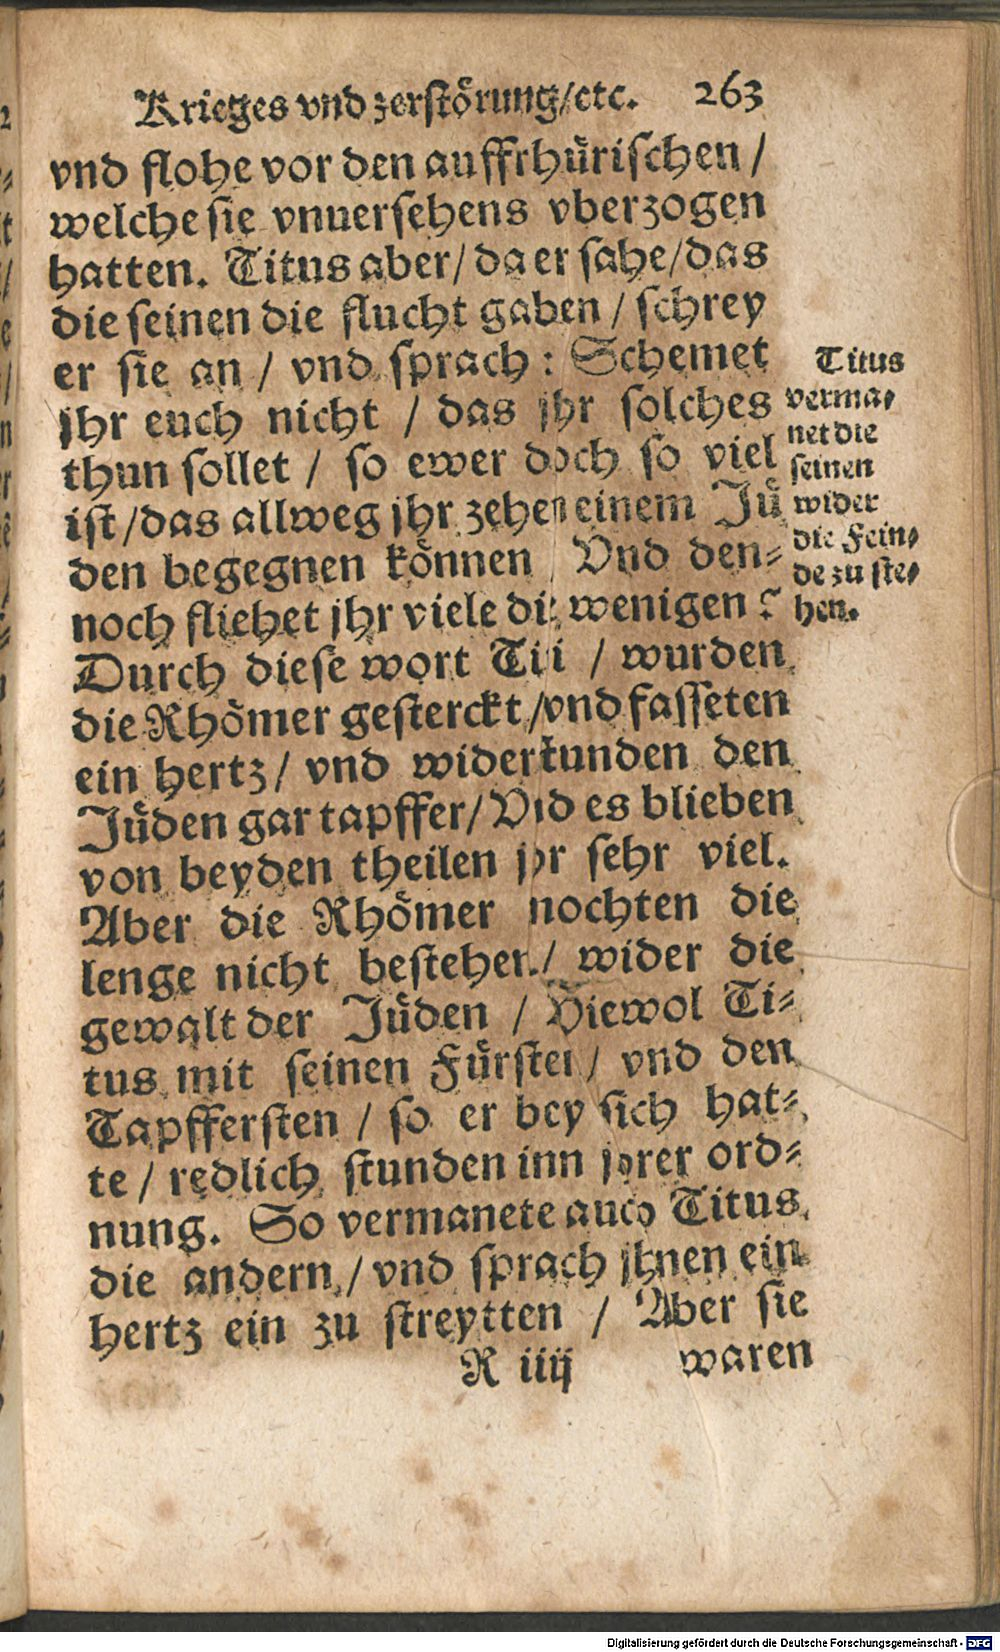 Krieges vnd zerstörung/etc. 263
vnd flohe vor den auffrhürischen /
welche sie vnuersehens vberzogen
hatten. Titus aber/ da er sahe/das
die seinen die flucht gaben / schrey
er sie an / vnd sprach : Schemet
jhr euch nicht / das jhr solches
thun sollet / so ewer doch so viel
ist/das allweg jhr zehen einem Jü
den begegnen können Vnd den=
noch fliehet jhr viele die wenigen ?
Durch diese wort Titi / wurden
die Rhömer gesterckt /vnd fasseten
ein hertz/ vnd widerstunden den
Jüden gar tapffer/ Vnd es blieben
von beyden theilen jhr sehr viel.
Aber die Rhömer mochten die
lenge nicht bestehen/ wider die
gewalt der Jüden / Wiewol Ti=
tus mit seinen Fürsten / vnd den
Tapffersten / so er bey sich hat=
te / redlich stunden inn jhrer ord=
nung. So vermanete auch Titus
die andern / vnd sprach jhnen ein
hertz ein zu streytten / Aber sie
R iiij waren
Titus
verma=
net die
seinen
wider
die Fein=
de zu ste=
hen.
Digitalisierung gefördert durch die Deutsche Forschungsgemeinschaft - DFG